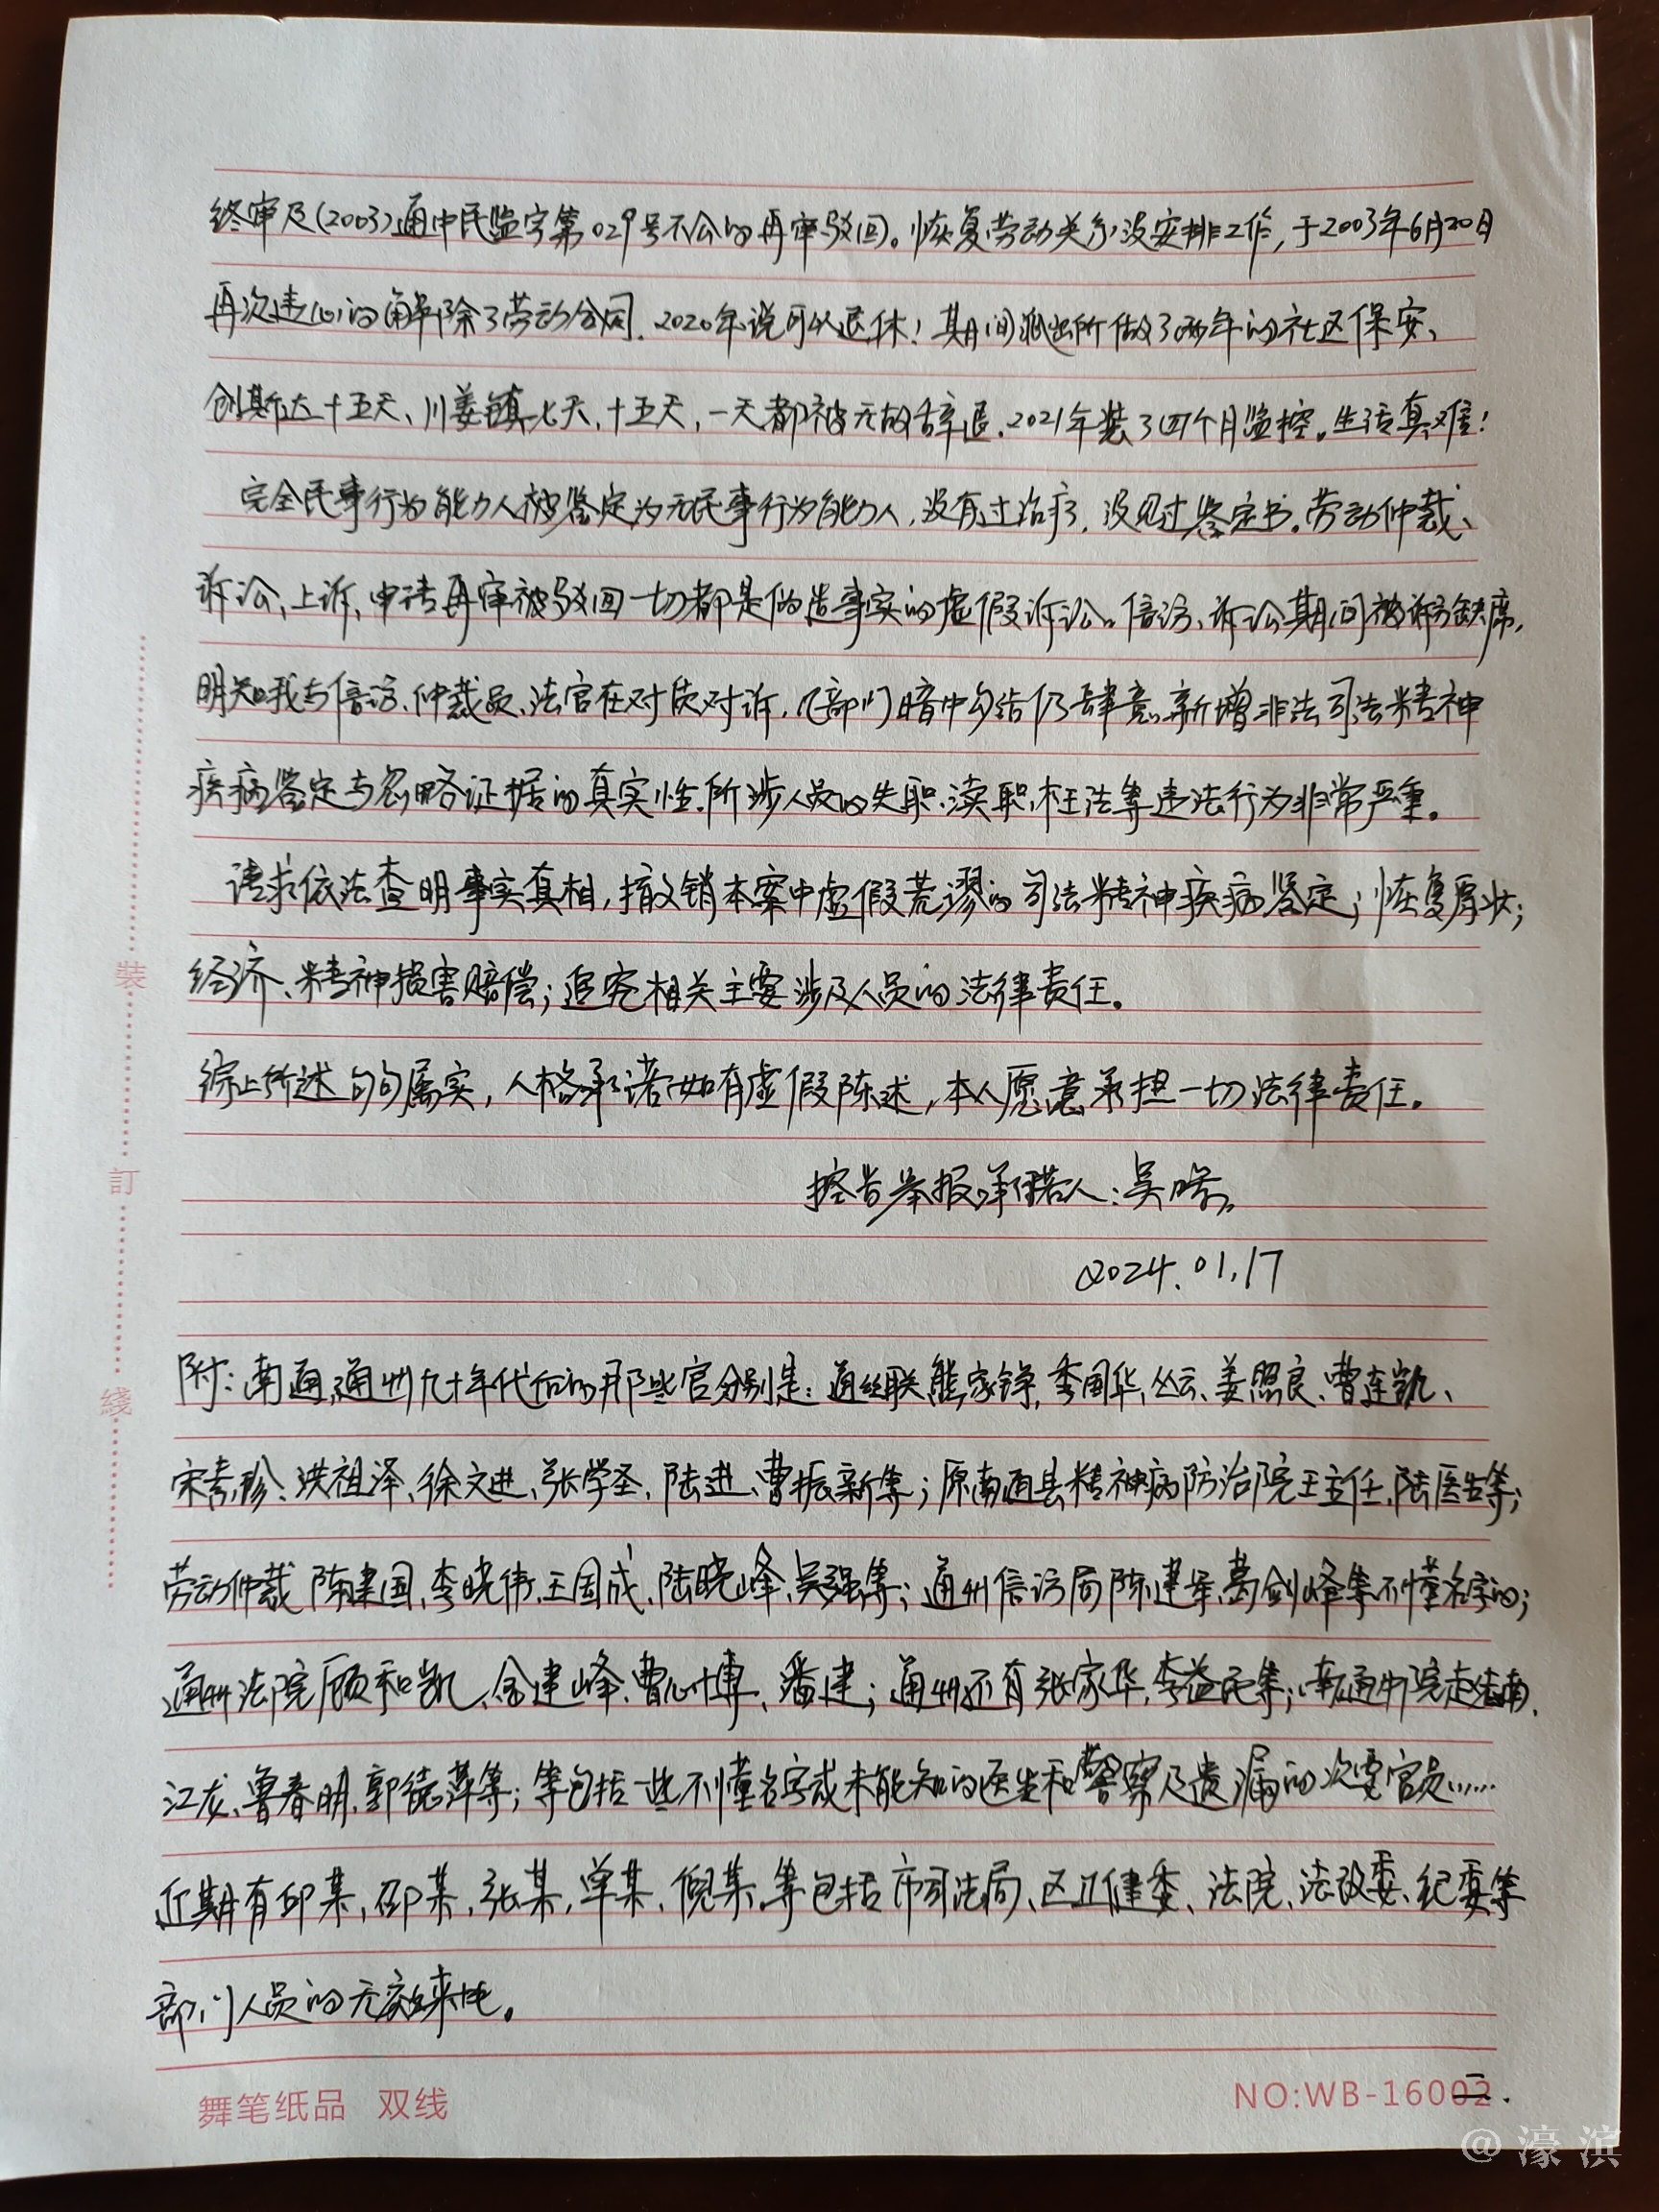 终审及(2003)通中民监字第029号不公的再审驳回。恢复劳动关系没安排工作,于2003年6月20日
再次违心的解除了劳动合同.2020年说可以退休!其间派出所做了两年的社区保安、
创斯达十五天、川姜镇七天,十五天,一天都被无故辞退.2021年装了四个月监控。生活真难!
完全民事行为能力人被鉴定为无民事行为能力人,没有过治疗,没见过鉴定书。劳动仲裁、
诉讼、上诉、申请再审被驳回一切都是伪造事实的虚假诉讼。信访、诉讼期间被诉方缺席,
明知我与信访、仲裁员、法官在对质对诉,几部门暗中勾结仍肆意新增非法司法精神
疾病鉴定与忽略证据的真实性.所涉人员的失职、渎职、枉法等违法行为非常严重。
请求依法查明事实真相,撤销本案中虚假荒谬的司法精神疾病鉴定;恢复原状;
经济、精神损害赔偿;追究相关主要涉及人员的法律责任。
综上所述句句属实,人格承诺如有虚假陈述,本人愿意承担一切法律责任。
控告举报承诺人:吴
2024.01.17
附:南通,通州九十年代后的那些官分别是:通丝联熊家铮,季国华,丛云、姜照良、曹连凯、
宋素珍、洪祖泽、徐文进、张学圣、陆进、曹振新等;原南通县精神病防治院王主任,陆医生等;
劳动仲裁陈建国,李晓伟,王国成,陆晓峰,吴强等;通州信访局陈建军,葛剑峰等不懂名字的;
通州法院顾和凯、金建峰、曹心博、潘建;通州还有张家华,李益民等;南通中院赵浩南、
江龙、鲁春明、郭德萍等;等包括一些不懂名字或未能知的医生和警察及遗漏的次要官员……
近期有邱某,邵某,张某,单某,倪某,等包括市司法局、区卫健委、法院、法改委、纪委等
部门人员的无疫来吐。
装
訂
綫
舞笔纸品 双线
NO:WB-16002
二.
@濠滨